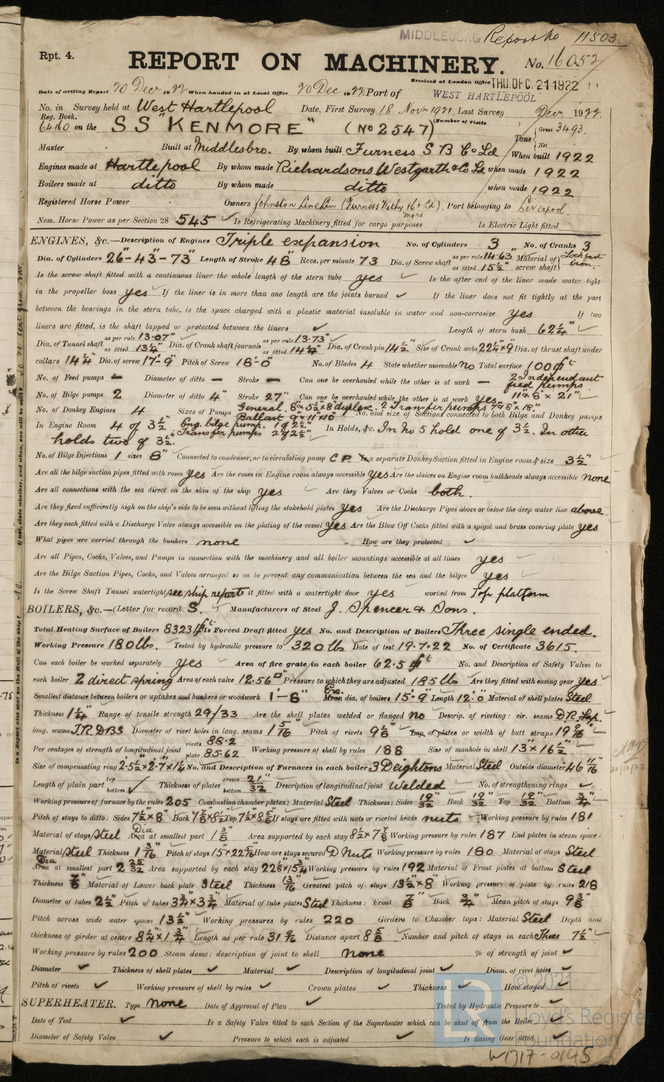 MIDDLESBRO Report No 11503
Rpt. 4. REPORT ON MACHINERY. No. 16052
Received at London Office THU. DEC. 21 1922
Date of writing Report 20 Dec 1922 When handed in at Local Office 20 Dec 22 Port of WEST HARTLEPOOL
No. in Survey held at West Hartlepool Date, First Survey 18 Nov 1921 Last Survey Dec 1922
Reg. Book. (Number of Visits
6460 on the SS "KENMORE" (No 2547) Tons { Gross 3493 Net
Master Built at Middlesbro. By whom built Furness S B Co Ld When built 1922
Engines made at Hartlepool By whom made Richardsons Westgarth & Co Ld when made 1922
Boilers made at ditto By whom made ditto when made 1922
Registered Horse Power Owners Johnston Line Lim (Furness Withy & Co Ld, Mgrs Port belonging to Liverpool
Nom. Horse Power as per Section 28 545 Is Refrigerating Machinery fitted for cargo purposes Is Electric Light fitted
ENGINES, &c.—Description of Engines Triple expansion No. of Cylinders 3 No. of Cranks 3
Dia. of Cylinders 26"-43-73" Length of Stroke 48 Revs. per minute 73 Dia. of Screw shaft as per rule 14.63 as fitted 15½" Material of screw shaft Iron
Is the screw shaft fitted with a continuous liner the whole length of the stern tube yes Is the after end of the liner made water tight
in the propeller boss yes If the liner is in more than one length are the joints burned ✓ If the liner does not fit tightly at the part
between the bearings in the stern tube, is the space charged with a plastic material insoluble in water and non-corrosive yes If two
liners are fitted, is the shaft lapped or protected between the liners ✓ Length of stern bush 62¼"
Dia. of Tunnel shaft as per rule 13.07" as fitted 13¼" Dia. of Crank shaft journals as per rule 13.73" as fitted 14¼" Dia. of Crank pin 14½" Size of Crank webs 22½×9 Dia. of thrust shaft under
collars 14¼" Dia. of screw 17-9" Pitch of Screw 18-0" No. of Blades 4 State whether moveable No Total surface 100 ft
No. of Feed pumps — Diameter of ditto — Stroke — Can one be overhauled while the other is at work — 2 Independent feed pumps
No. of Bilge pumps 2 Diameter of ditto 4" Stroke 27" Can one be overhauled while the other is at work Yes 11×8×21"
No. of Donkey Engines 4 Sizes of Pumps General 8×5½×8 duplex. 2 Transfer pumps 7×8×18" No. and size of Suctions connected to both Bilge and Donkey pumps
In Engine Room 4 of 3½ Eng. bilge pump. 1 of 2½" In Holds, &c. In No 5 hold one of 3½. In other
holds two of 3½. Transfer pumps 2 of 2½"
No. of Bilge Injections 1 sizes 8" Connected to condenser, or to circulating pump C.P. Is a separate Donkey Suction fitted in Engine room & size 3½"
Are all the bilge suction pipes fitted with roses yes Are the roses in Engine room always accessible yes Are the sluices on Engine room bulkheads always accessible none
Are all connections with the sea direct on the skin of the ship yes Are they Valves or Cocks both.
Are they fixed sufficiently high on the ship's side to be seen without lifting the stokehold plates yes Are the Discharge Pipes above or below the deep water line above
Are they each fitted with a Discharge Valve always accessible on the plating of the vessel yes Are the Blow Off Cocks fitted with a spigot and brass covering plate yes
What pipes are carried through the bunkers none How are they protected ✓
Are all Pipes, Cocks, Valves, and Pumps in connection with the machinery and all boiler mountings accessible at all times yes
Are the Bilge Suction Pipes, Cocks, and Valves arranged so as to prevent any communication between the sea and the bilges yes
Is the Screw Shaft Tunnel watertight see ship report Is it fitted with a watertight door yes worked from Top platform
BOILERS, &c.—(Letter for record S. Manufacturers of Steel J. Spencer & Sons.
Total Heating Surface of Boilers 8323 ft Is Forced Draft fitted yes No. and Description of Boilers Three single ended.
Working Pressure 180 lbs. Tested by hydraulic pressure to 320 lbs Date of test 19.7.22 No. of Certificate 3615.
Can each boiler be worked separately yes Area of fire grate in each boiler 62.5 ft No. and Description of Safety Valves to
each boiler 2 direct spring Area of each valve 12.56" Pressure to which they are adjusted 185 lbs Are they fitted with easing gear yes
Smallest distance between boilers or uptakes and bunkers or woodwork 1'-6" Mean dia. of boilers 15'-9" Length 12'-0" Material of shell plates Steel
Thickness 1¼" Range of tensile strength 29/33 Are the shell plates welded or flanged no Descrip. of riveting: cir. seams D.R. Lap.
long. seams T.R.D.B.S Diameter of rivet holes in long. seams 1 5/16 Pitch of rivets 9⅛" Lap of plates or width of butt straps
Per centages of strength of longitudinal joint rivets 88.2 plate 85.62 Working pressure of shell by rules 188 Size of manhole in shell 13"×16½"
Size of compensating ring No. and Description of Furnaces in each boiler 3 Deightons Material Steel Outside diameter
Length of plain part top bottom Thickness of plates crown bottom 21/32 Description of longitudinal joint Welded No. of strengthening rings ✓
Working pressure of furnace by the rules 205 Combustion chamber plates: Material Steel Thickness: Sides Back Top Bottom
Pitch of stays to ditto: Sides 7½×8" Back Top If stays are fitted with nuts or riveted heads nuts Working pressure by rules 181
Material of stays Steel Dia at smallest part Area supported by each stay Working pressure by rules 187 End plates in steam space:
Material Steel Thickness 1 3/16 Pitch of stays How are stays secured D Nuts Working pressure by rules 180 Material of stays Steel
Dia at smallest part Area supported by each stay Working pressure by rules 192 Material of Front plates at bottom Steel
Thickness Material of Lower back plate Steel Thickness Greatest pitch of stays Working pressure of plate by rules 218
Diameter of tubes 2½" Pitch of tubes Material of tube plates Steel Thickness: Front Back Mean pitch of stays
Pitch across wide water spaces 13½" Working pressures by rules 220 Girders to Chamber tops: Material Steel Depth and
thickness of girder at centre Length as per rule Distance apart Number and pitch of stays in each Three 7½"
Working pressure by rules 200 Steam dome: description of joint to shell none % of strength of joint ✓
Diameter ✓ Thickness of shell plates ✓ Material ✓ Description of longitudinal joint ✓ Diam. of rivet holes ✓
Pitch of rivets ✓ Working pressure of shell by rules ✓ Crown plates ✓ Thickness ✓ How stayed ✓
SUPERHEATER. Type none Date of Approval of Plan ✓ Tested by Hydraulic Pressure to ✓
Date of Test ✓ Is a Safety Valve fitted to each Section of the Superheater which can be shut off from the Boiler
Diameter of Safety Valve ✓ Pressure to which each is adjusted ✓ Is Easing Gear fitted ✓
© 2021
Lloyd's Register
Foundation
W1317-0145